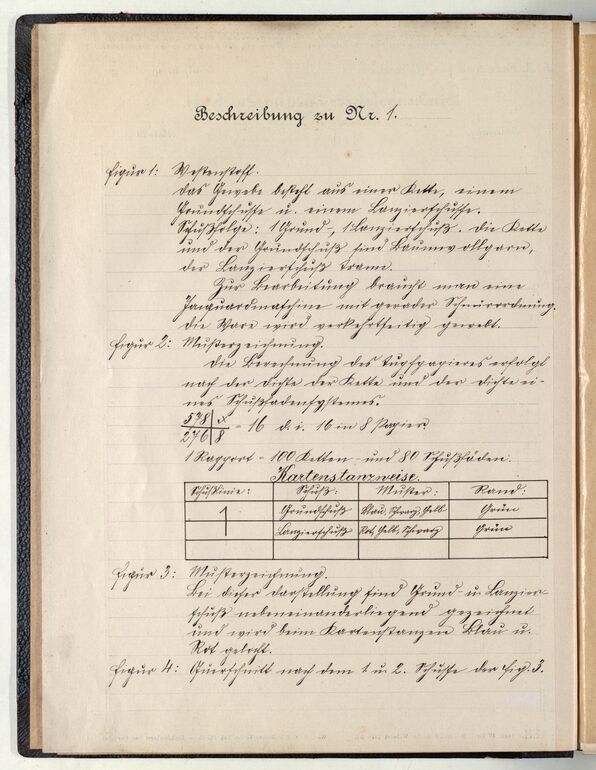 Beschreibung zu Nr. 1.
Figur 1: Westenstoff.
Das Gewebe besteht aus einer Kette, einem
Grundschusse u. einem Lanzierschusse.
Schußfolge: 1 Grund-, 1 Lanzierschuß. Die Kette
und der Grundschuß sind Baumwollgarn,
der Lanzierschuß Trame.
Zur Bearbeitung braucht man eine
Jacquardmaschine mit gerader Schnürordnung.
Die Ware wird verkehrtseitig gewebt.
Figur 2: Musterzeichnung.
Die Berechnung des Tupfpapieres erfolgt
nach der Dichte der Kette und der Dichte ei-
nes Schußfadensystemes.
578 | x
276 | 8 = 16 d. i. 16 in 8 Papier.
1 Rapport = 100 Ketten- und 80 Schußfäden.
Kartenstanzweise.
Schußlinie: Schuß: Muster: Rand:
1 Grundschuß Blau, Schwarz, Gelb Grün
Lanzierschuß Rot, Gelb, Schwarz Grün
Figur 3: Musterzeichnung.
Bei dieser Darstellung sind Grund- u. Lanzier-
schuß nebeneinanderliegend gezeichnet
und wird beim Kartenstanzen Blau u.
Rot gelocht.
Figur 4: Querschnitt nach dem 1 u. 2. Schusse der Fig. 3.